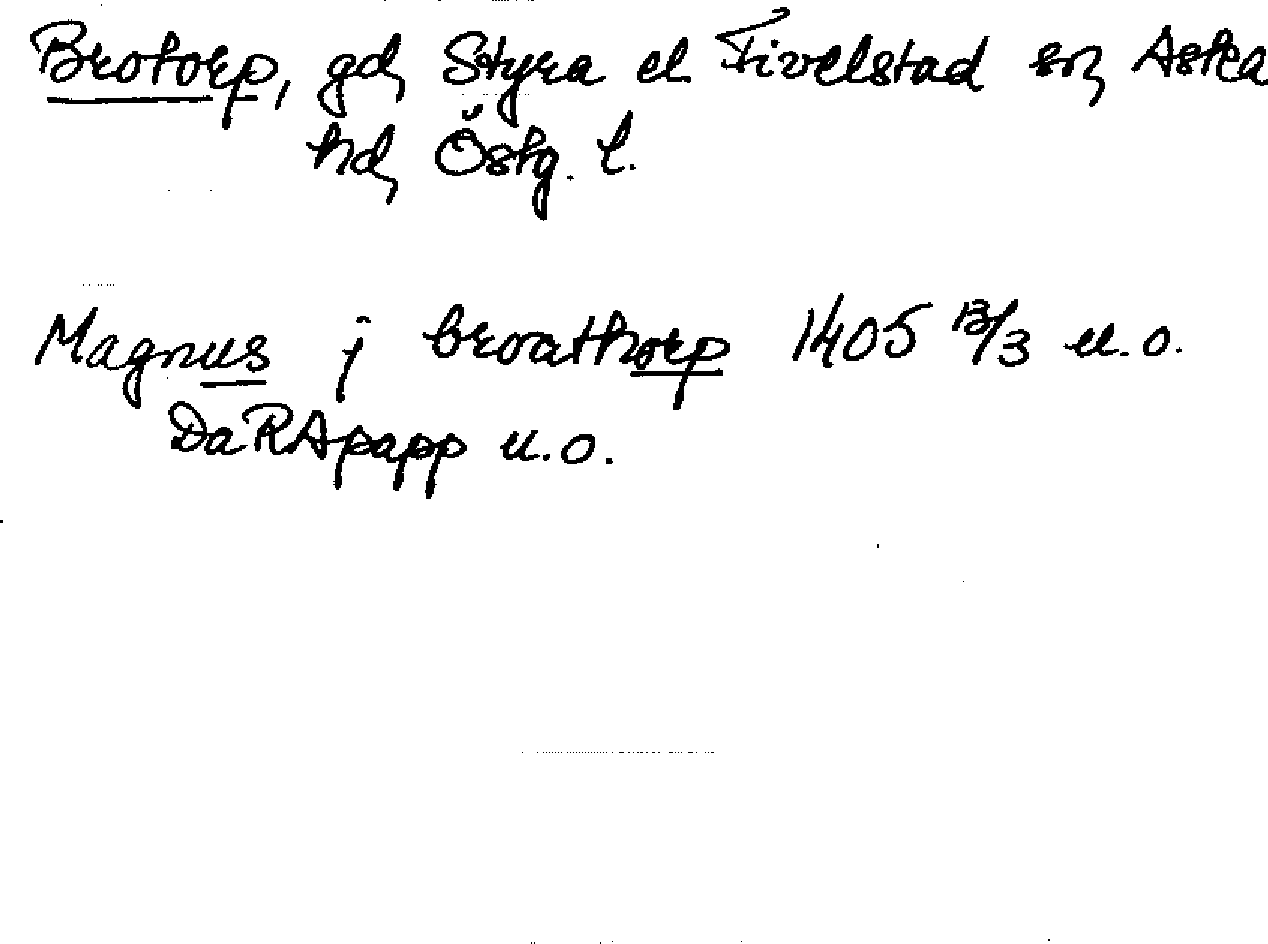 Brotorp, gd, Styra el Fivelstad sn, Aska
hd, Östg. l.
Magnus j broathorp 1405 13/3 u.o.
DaRApapp u.o.